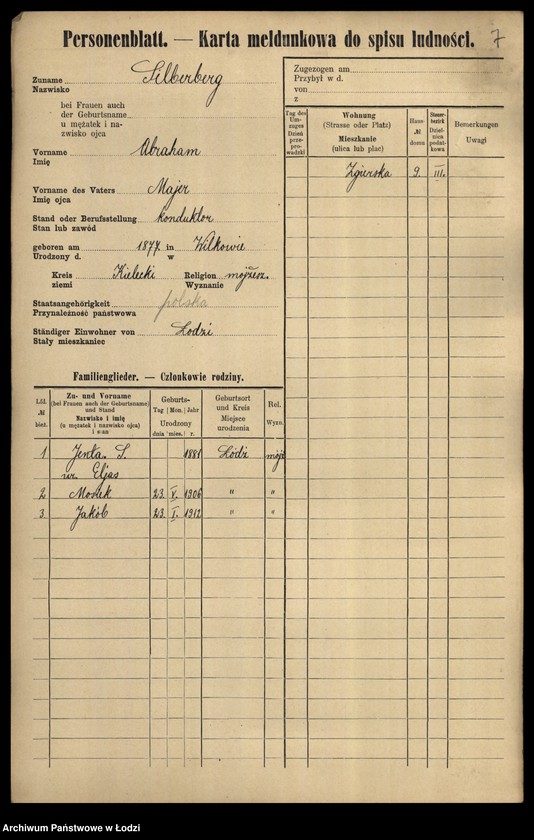 Personenblatt. — Karta meldunkowa do spisu ludności.
7
Zuname Silberberg
Nazwisko
bei Frauen auch
der Geburtsname
u mężatek i na-
zwisko ojca
Vorname Abraham
Imię
Vorname des Vaters Majer
Imię ojca
Stand oder Berufsstellung konduktor
Stan lub zawód
geboren am 1877 in Wilkowie
Urodzony d. w
Kreis Kielecki Religion mojżesz.
ziemi Wyznanie
Staatsangehörigkeit polska
Przynależność państwowa
Ständiger Einwohner von Łodzi
Stały mieszkaniec
Familienglieder. — Członkowie rodziny.
Lfd. № bież.
Zu- und Vorname
(bei Frauen auch der Geburtsname)
und Stand
Nazwisko i imię
(u mężatek i nazwisko ojca)
i stan
Geburts-
Tag Mon. Jahr
Urodzony
dnia mies. r.
Geburtsort
und Kreis
Miejsce
urodzenia
Rel.
Wyzn.
1 Jenta S. 1881 Łódź mojż
ur. Eljas
2 Moszek 23 V. 1906 " "
3. Jakób 23 I. 1912 " "
Zugezogen am
Przybył w d.
von
z
Tag des
Um-
zuges
Dzień
prze-
pro-
wadzki
Wohnung
(Strasse oder Platz)
Mieszkanie
(ulica lub plac)
Haus-
№
domu
Steuer-
bezirk
Dziel-
nica
podat-
kowa
Bemerkungen
Uwagi
Zgierska 9. III.
Archiwum Państwowe w Łodzi